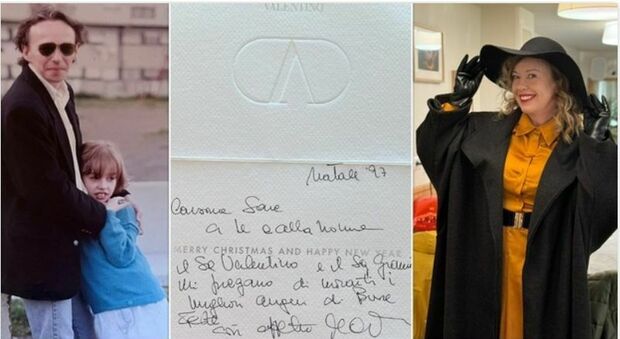 VALENTINO
Natale '97
a te e alla nonna
MERRY CHRISTMAS AND HAPPY NEW YEAR
il Sig Valentino e il Sig
mi pregano di inviarti i
migliori auguri di Buone
Feste
con affetto